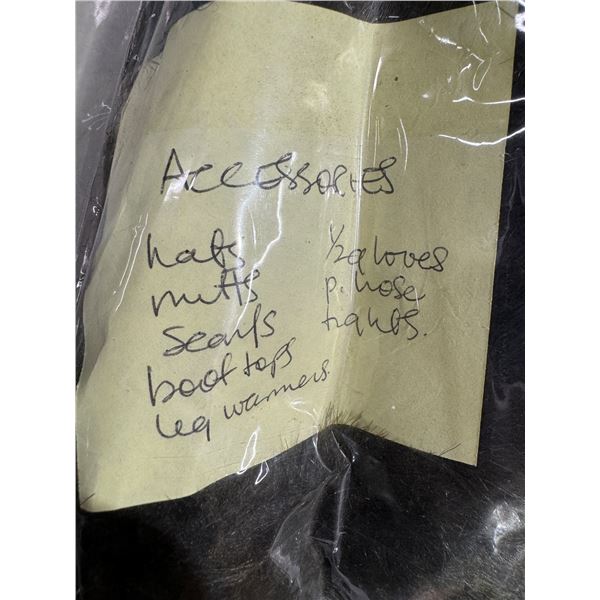 Accessories
hats
mitts
scarfs
boot tops
leg warmers
1/2 gloves
p. hose
tights.